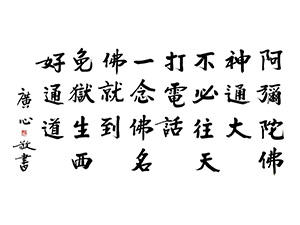 阿彌陀佛
神通大
不必往天
打電話
一念佛名
佛就到
免獄生西
好通道
廣心敬書